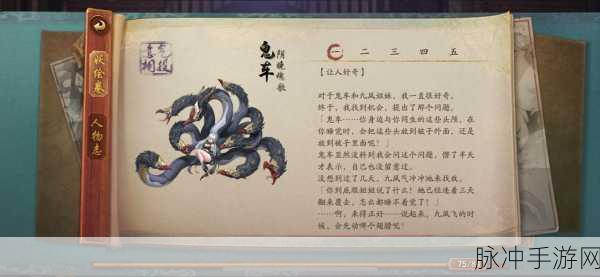 妖绘卷
人物志
鬼车
阴晓魂歌
一 二 三 四 五
【让人好奇】
对于鬼车和九凤姐妹，我一直很好奇。
终于，我找到机会，提出了那个问题。
「……你身边与你同生的这些头颅，在
你睡觉时，会把这些头放到被子外面，还是
放到被子里面呢！」
鬼车显然没料到我会问这个问题，愣了半天
才表示，自己也没留意过。
没想到过了几天，九凤气冲冲地来找我。
「你到底跟姐姐说了什么！她已经连着三天
翻来覆去，怎么都睡不着觉了！」
「……啊，来得正好——说起来，九凤飞的时
候，会先动哪个翅膀呢！」
脉冲手游网